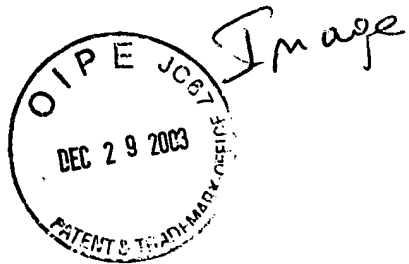 OIPE JC67
DEC 29 2003
PATENT & TRADEMARK OFFICE
Image